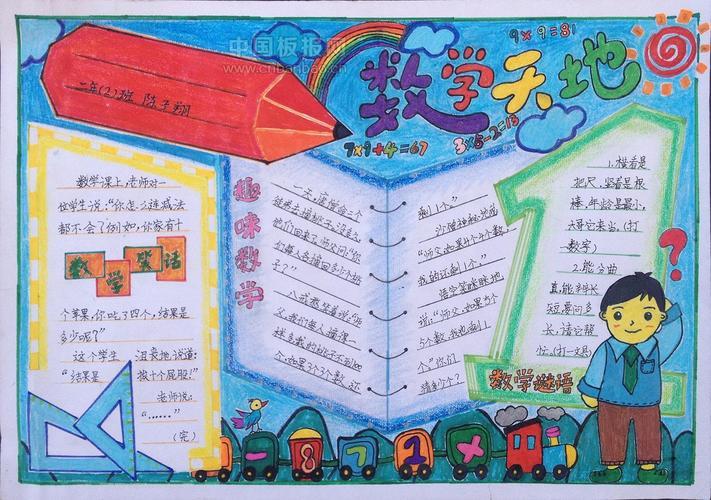 中国板报网
www.cnbanbao.cn
数学天地
9×9=81
7×9+4=67
3×5-2=13
二年(2)班 陈子翔
数学课上,老师对一
位学生说:“你怎么连减法
都不会了例如,你家有十
数学笑话
个苹果,你吃了四个,结果是
多少呢?”
这个学生 沮丧地说道:
“结果是 挨十个屁股!”
老师说:
“……”
(完)
趣味数学
一天,唐僧命三个
徒弟去摘桃子,没多久,
他们回来了。师父问:“你
们每人各摘回多少个桃
子?”
八戒憨笑着说:“师
父,我们每人摘得一
样多我的桃子不到100
个,如果3个3个数,还
剩1个。”
沙僧神秘地说
“师父,如果4个4个数,
我的还剩1个。”
悟空笑眯眯地
说:“师父:如果5个
5个数,我也剩1
个。”你们
猜多少个?
1
1.横看是
把尺,坐着是根
棒,年龄是最小,
大哥它来当。(打一
数字)
2.能分曲
直,能辨长
短,要问多
长,请它帮
忙。(打一文具)
数学谜语
?
-871×